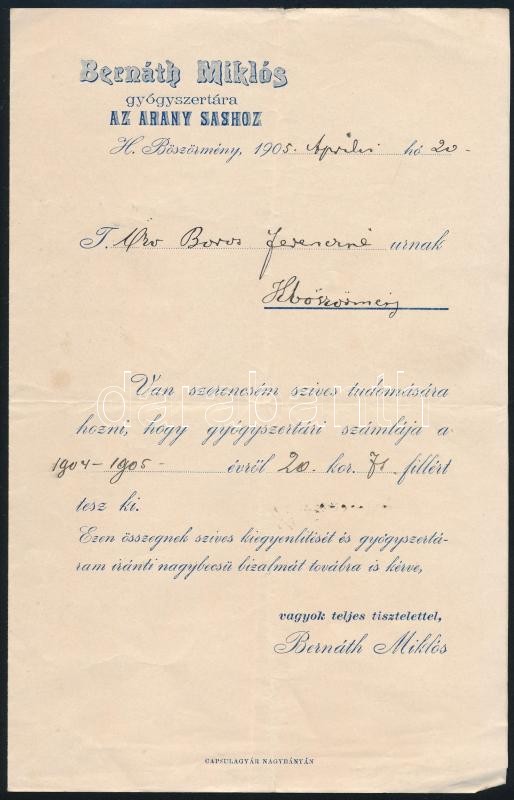 Bernáth Miklós
gyógyszertára
AZ ARANY SASHOZ
H. Böszörmény, 1905. Április hó 20-
T. Boros Ferencné urnak
Hböszörmény
Van szerencsém szives tudomására
hozni, hogy gyógyszertári számlája a
1904-1905- évről 20. kor. 71 fillért
tesz ki.
Ezen összegnek szives kiegyenlitését és gyógyszertá-
ram iránti nagybecsü bizalmát továbra is kérve,
vagyok teljes tisztelettel,
Bernáth Miklós
CAPSULAGYÁR NAGYBÁNYÁN
darabanth